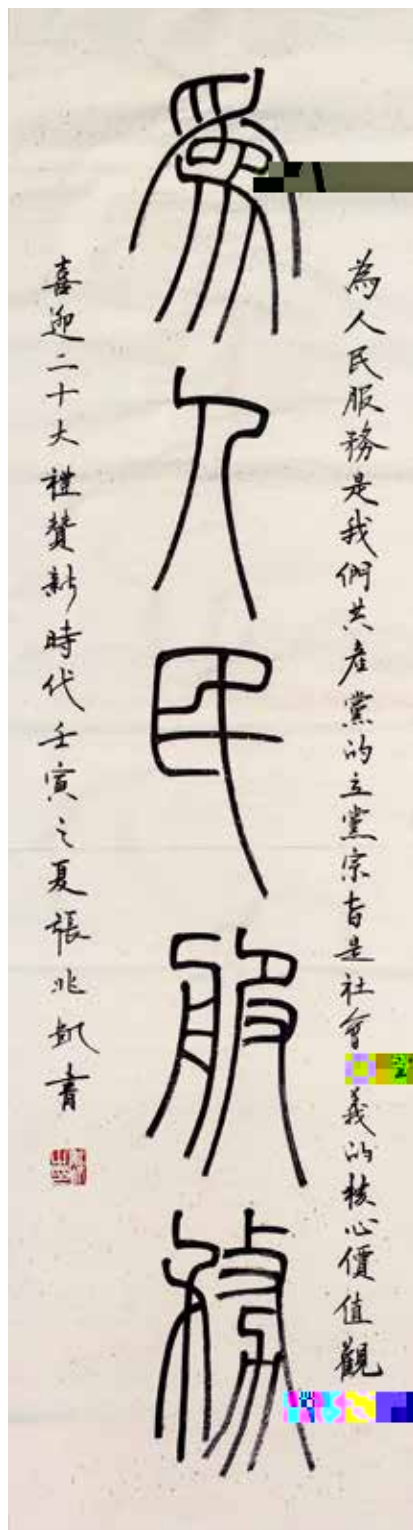 為人民服務是我們共產黨的立黨宗旨是社會義的核心價值觀
爲人民服務
喜迎二十大禮贊新時代壬寅之夏張兆凱書